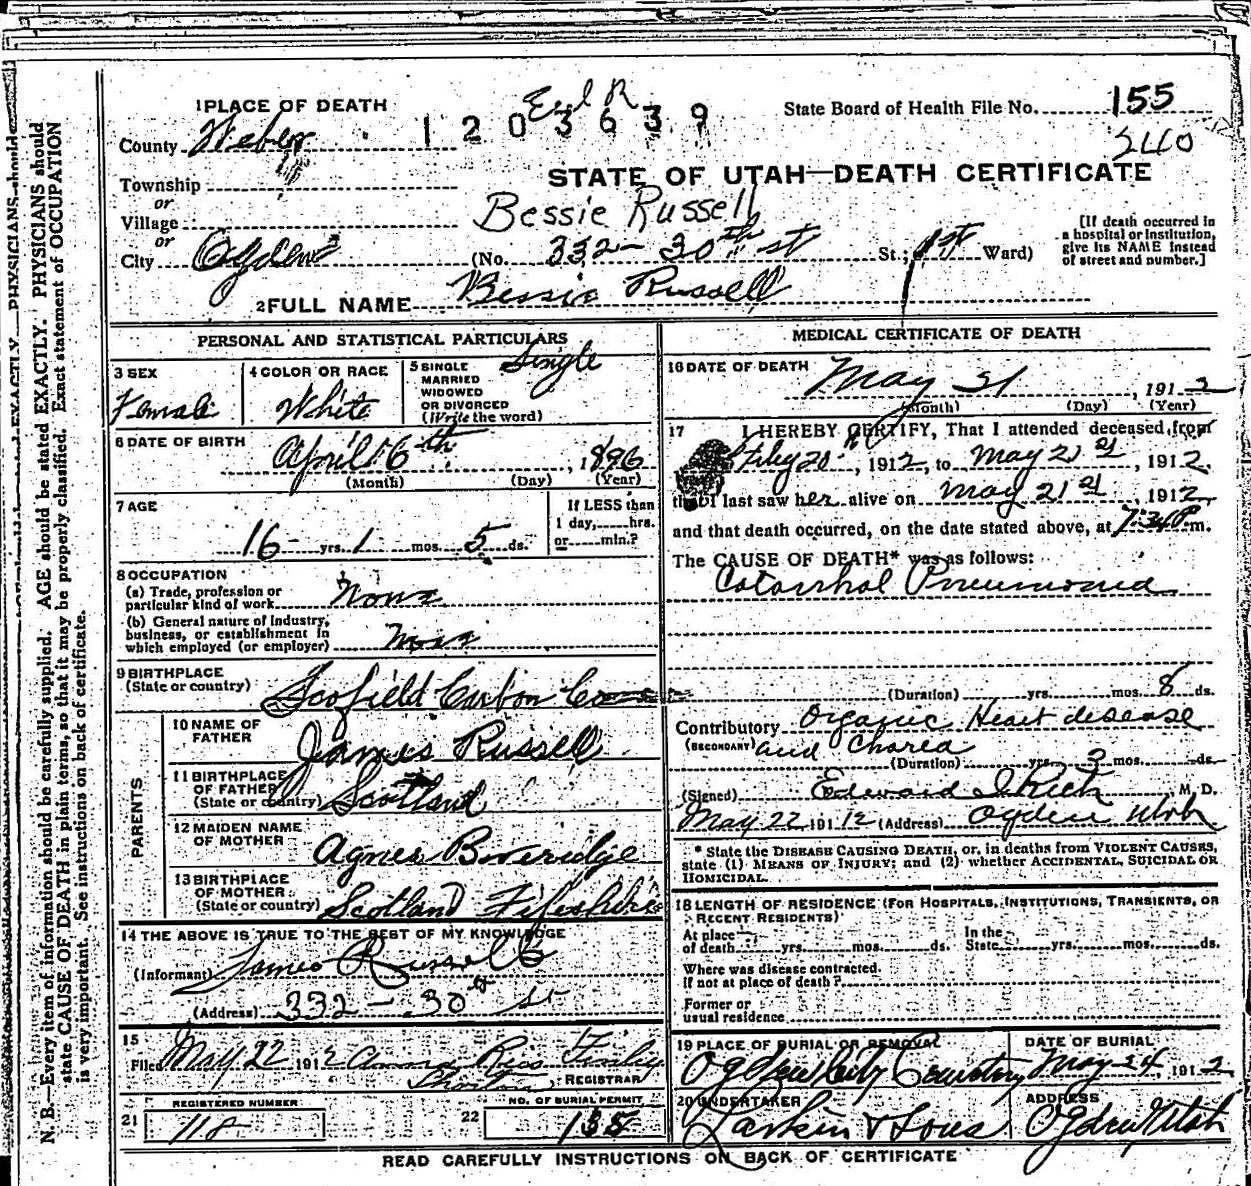 1 PLACE OF DEATH
County Weber
1203639
State Board of Health File No. 155
2410
STATE OF UTAH—DEATH CERTIFICATE
Township
or
Village
or
City Ogden
Bessie Russell
(No. 332 - 30th st St.; 1st Ward)
[If death occurred in a hospital or institution, give its NAME instead of street and number.]
2 FULL NAME Bessie Russell
PERSONAL AND STATISTICAL PARTICULARS
3 SEX
Female
4 COLOR OR RACE
White
5 SINGLE
MARRIED
WIDOWED
OR DIVORCED
(Write the word)
Single
6 DATE OF BIRTH
April 16th, 1896
(Month) (Day) (Year)
7 AGE
16 yrs. 1 mos. 5 ds.
If LESS than
1 day, hrs.
or min.?
8 OCCUPATION
(a) Trade, profession or
particular kind of work None
(b) General nature of industry,
business, or establishment in
which employed (or employer) None
9 BIRTHPLACE
(State or country) Scofield Carbon Co
PARENTS
10 NAME OF
FATHER James Russell
11 BIRTHPLACE
OF FATHER
(State or country) Scotland
12 MAIDEN NAME
OF MOTHER Agnes Beveridge
13 BIRTHPLACE
OF MOTHER
(State or country) Scotland Fifeshire
14 THE ABOVE IS TRUE TO THE BEST OF MY KNOWLEDGE
(Informant) James Russell
(Address) 332 - 30th St
15
Filed May 22 1912 REGISTRAR
REGISTERED NUMBER
21 118
NO. OF BURIAL PERMIT
22 135
MEDICAL CERTIFICATE OF DEATH
16 DATE OF DEATH
May 21, 1912
(Month) (Day) (Year)
17 I HEREBY CERTIFY, That I attended deceased from
20, 1912, to May 21st, 1912,
that I last saw her alive on May 21st, 1912
and that death occurred, on the date stated above, at m.
The CAUSE OF DEATH* was as follows:
Catarrhal Pneumonia
(Duration) yrs. mos. 8 ds.
Contributory Organic Heart disease
(SECONDARY) and Chorea
(Duration) yrs. 3 mos. ds.
(Signed) Edward I Rich, M.D.
May 22 1912 (Address) Ogden Utah
* State the DISEASE CAUSING DEATH, or, in deaths from VIOLENT CAUSES,
state (1) MEANS OF INJURY; and (2) whether ACCIDENTAL, SUICIDAL OR
HOMICIDAL.
18 LENGTH OF RESIDENCE (FOR HOSPITALS, INSTITUTIONS, TRANSIENTS, OR
RECENT RESIDENTS)
At place
of death yrs. mos. ds.
In the
State yrs. mos. ds.
Where was disease contracted.
if not at place of death?
Former or
usual residence
19 PLACE OF BURIAL OR REMOVAL
Ogden City Cemetery
DATE OF BURIAL
May 24 1912
20 UNDERTAKER
Larkin & Sons
ADDRESS
Ogden Utah
READ CAREFULLY INSTRUCTIONS ON BACK OF CERTIFICATE
N. B.—Every item of information should be carefully supplied. AGE should be stated EXACTLY. PHYSICIANS should
state CAUSE OF DEATH in plain terms, so that it may be properly classified. Exact statement of OCCUPATION
is very important. See instructions on back of certificate.